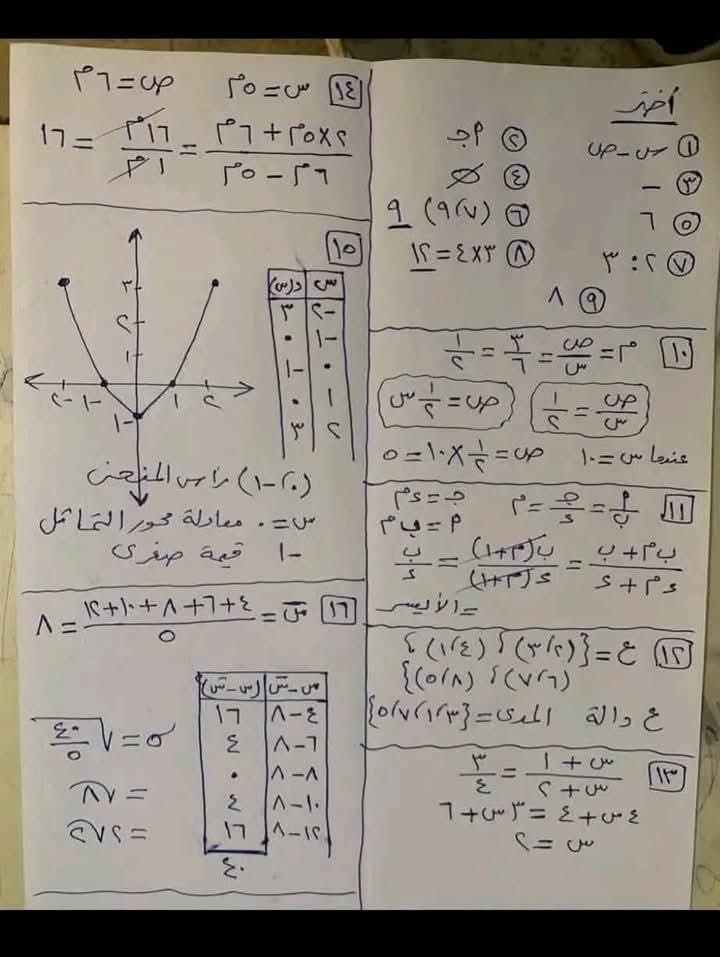 أختر
① س - ص ② م جـ
③ - ④ ∅
⑤ ٦ ⑥ (٩،٧) ٩
⑦ ٢ : ٣ ⑧ ٣×٤ = ١٢
⑨ ٨
١٠ م = ص/س = ٣/٦ = ١/٢
ص/س = ١/٢ ص = ١/٢ س
عندما س = ١٠ ص = ١/٢ × ١٠ = ٥
١١ م/ب = جـ/ء = م جـ = ء م
م = ب م
ب م + ب / ء م + ء = ب(م+١) / ء(م+١) = ب/ء
= الأيسر
١٢ ع = {(٣،٢) ، (١،٤) ،
(٧،٦) ، (٥،٨)}
ع دالة المدى = {٥،٧،١،٣}
١٣ س + ١ / س + ٢ = ٣/٤
٤س + ٤ = ٣س + ٦
س = ٢
١٤ س = ٥م ص = ٦م
٢×٥م + ٦م / ٦م - ٥م = ١٦م / ١م = ١٦
١٥
س د(س)
-٢ ٣
-١ ٠
٠ -١
١ ٠
٢ ٣
٣
٢
١
-٢ -١ ١ ٢
-١
(٠، -١) رأس المنحنى
س = ٠ معادلة محور التماثل
-١ قيمة صغرى
١٦ س̄ = ٤+٦+٨+١٠+١٢ / ٥ = ٨
س-س̄ (س-س̄)
٤-٨ ١٦
٦-٨ ٤
٨-٨ ٠
١٠-٨ ٤
١٢-٨ ١٦
٤٠
σ = √٤٠/٥
= √٨
= ٢√٢